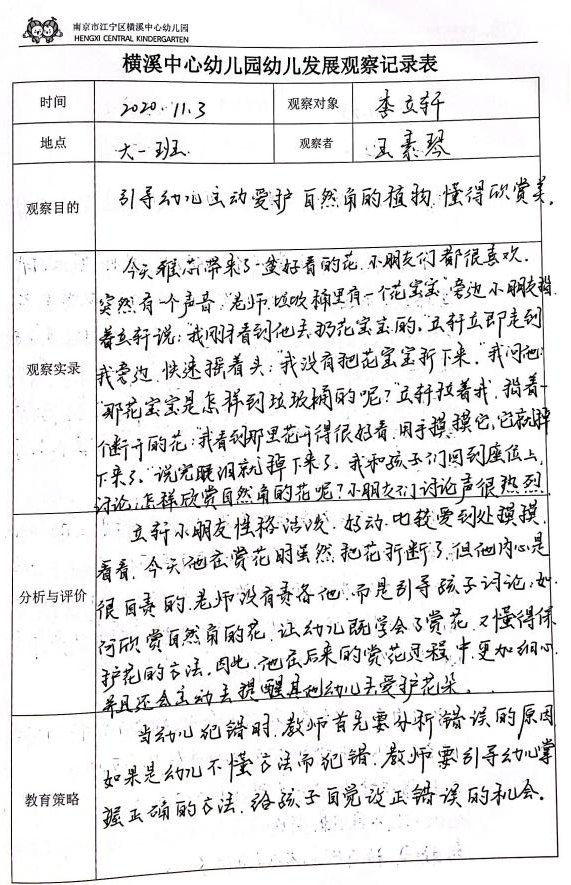 南京市江宁区横溪中心幼儿园
HENGXI CENTRAL KINDERGARTEN
横溪中心幼儿园幼儿发展观察记录表
时间 2020.11.3 观察对象 李立轩
地点 大一班 观察者 王素琴
观察目的 引导幼儿主动爱护自然角的植物,懂得欣赏美。
观察实录
今天雅芯带来了一盆好看的花,小朋友们都很喜欢.
突然有一个声音"老师,垃圾桶里有一个花宝宝"旁边小朋友指
着立轩说:"我刚才看到他去扔花宝宝的.立轩立即走到
我旁边,快速摇着头:"我没有把花宝宝折下来."我问他:
"那花宝宝是怎样到垃圾桶的呢?"立轩拉着我,指着一
个断了的花:"我看到那里花开得很好看,用手摸摸它,它就掉
下来了."说完眼泪就掉下来了.我和孩子们回到座位上,
讨论:怎样欣赏自然角的花呢?小朋友们讨论声很热烈.
分析与评价
立轩小朋友性格活泼、好动,比较爱到处摸摸,
看看,今天他在赏花时虽然把花折断了,但他内心是
很自责的,老师没有责备他,而是引导孩子讨论:如
何欣赏自然角的花,让幼儿既学会了赏花,又懂得保
护花的方法,因此,他在后来的赏花过程中更加细心,
并且还会主动去提醒其他幼儿去爱护花朵。
教育策略
当幼儿犯错时,教师首先要分析错误的原因
如果是幼儿不懂方法而犯错,教师要引导幼儿掌
握正确的方法,给孩子自觉改正错误的机会。